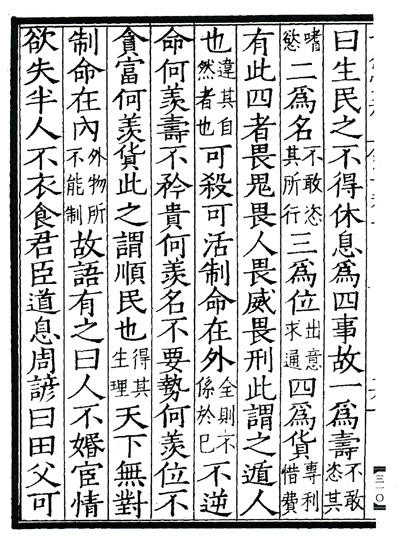 曰生民之不得休息爲四事故一爲壽不敢恣其
嗜慾二爲名不敢恣其所行三爲位出意求通四爲貨專利惜費
有此四者畏鬼畏人畏威畏刑此謂之遁人
也違其自然者也可殺可活制命在外全則不係於已不逆
命何羨壽不矜貴何羨名不要勢何羨位不
貪富何羨貨此之謂順民也得其生理天下無對
制命在內外物所不能制故語有之曰人不婚宦情
欲失半人不衣食君臣道息周諺曰田父可
三一〇